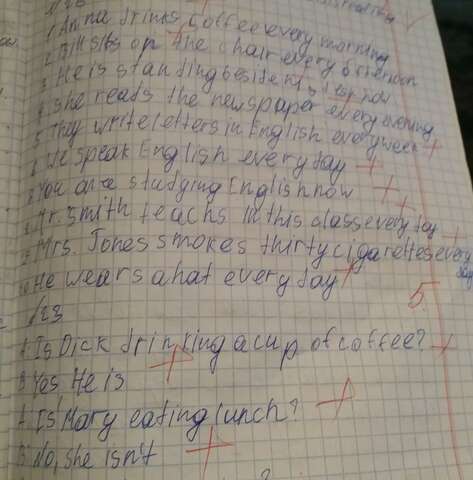 1. Anna drinks coffee every morning
2. Bill sits on the chair every
3. He is standing beside now
4. she reads the newspaper every evening
5. They write letters in English every week
6. We speak English every day
You are studying English now
Mr. Smith teachs in this class every day
Mrs. Jones smokes thirty cigarettes every day
He wears a hat every day
5
A. Is Dick drinking a cup of coffee?
B. Yes He is
A. Is Mary eating lunch?
B. No, she isn't